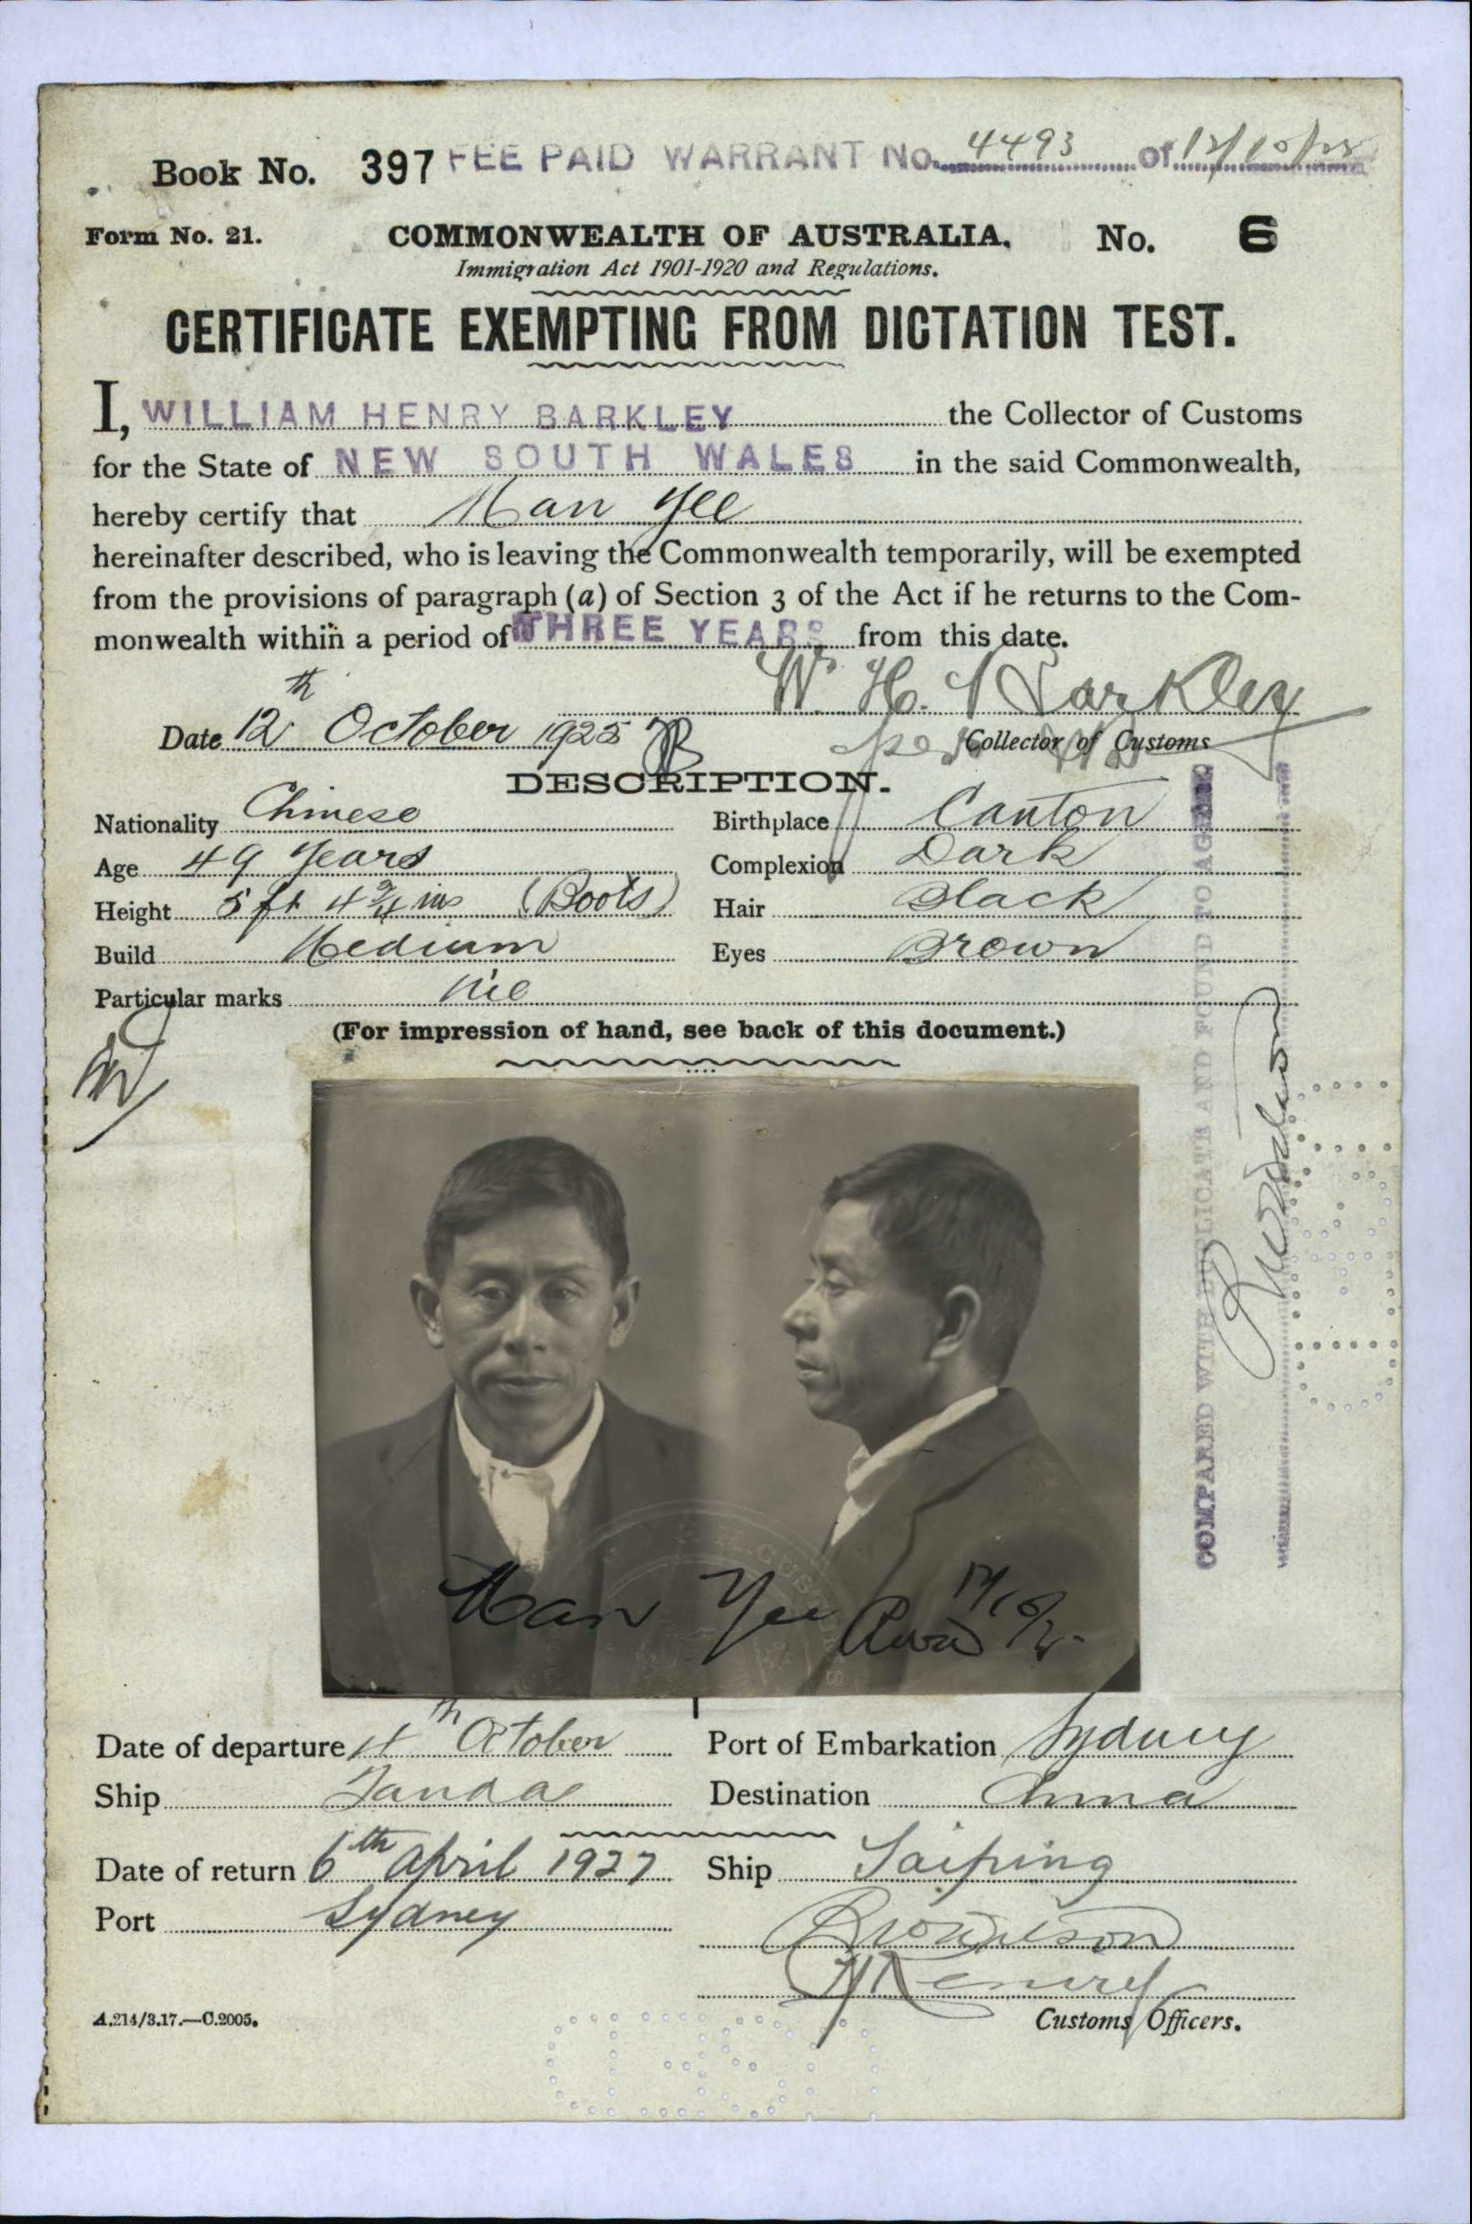 Book No. 397 FEE PAID WARRANT No. 4493 of 12/10/25
Form No. 21. COMMONWEALTH OF AUSTRALIA. No. 6
Immigration Act 1901-1920 and Regulations.
CERTIFICATE EXEMPTING FROM DICTATION TEST.
I, WILLIAM HENRY BARKLEY the Collector of Customs
for the State of NEW SOUTH WALES in the said Commonwealth,
hereby certify that Man Yee
hereinafter described, who is leaving the Commonwealth temporarily, will be exempted
from the provisions of paragraph (a) of Section 3 of the Act if he returns to the Com-
monwealth within a period of THREE YEARS from this date.
W. H. Barkley
Date 12th October 1925 Collector of Customs
DESCRIPTION.
Nationality Chinese Birthplace Canton
Age 49 Years Complexion Dark
Height 5 ft 4 3/4 ins (Boots) Hair Black
Build Medium Eyes Brown
Particular marks Nil
(For impression of hand, see back of this document.)
COMPARED WITH DUPLICATE AND FOUND TO AGREE
Man Yee
Date of departure October Port of Embarkation Sydney
Ship Tanda Destination China
Date of return 6th April 1927 Ship Taiping
Port Sydney
A.214/3.17.—C.2005. Customs Officers.